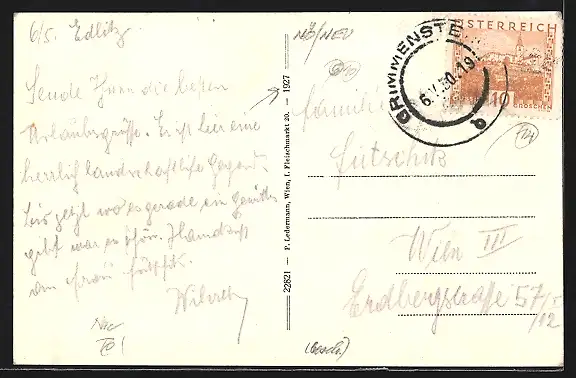 6/5. Edlitz.
Sende Ihnen die besten
Urlaubsgrüsse. Es ist hier eine
herrlich landschaftliche Gegend.
Bis jetzt wo es gerade ein Gewitter
gibt war es schön. Handkuss
an Frau
NÖ/NEU
22821 — F. Ledermann, Wien, I. Fleischmarkt 20. — 1927
ÖSTERREICH
10 GROSCHEN
GRIMMENSTE
6.V.30.19
Familie
Wien III
Erdbergstrasse 57/
/12